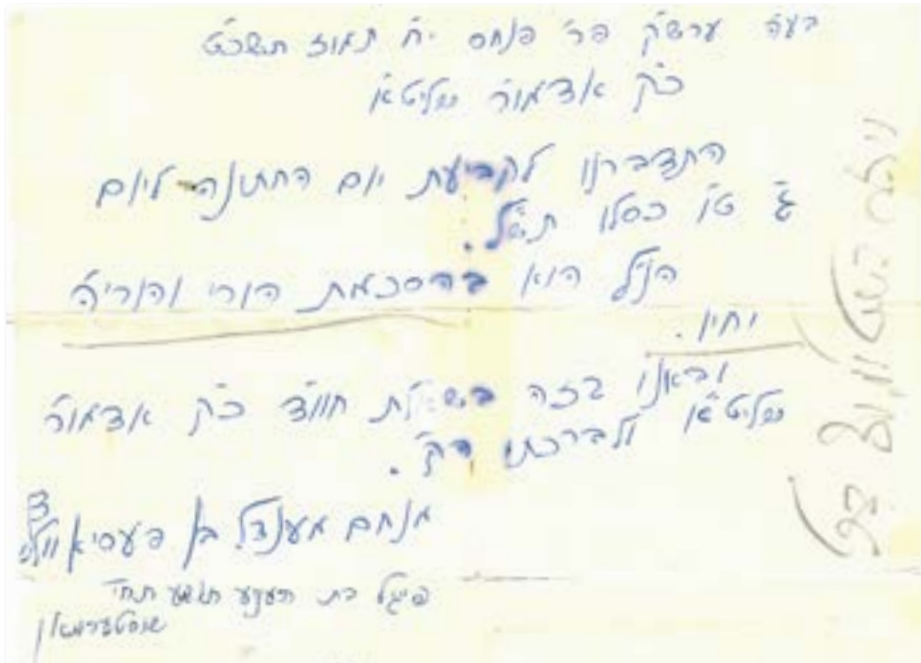 בעה ערשק פר' פנחס י"ח תמוז תשכט
כק אדמור שליטא
התדברנו לקביעת יום החתונה ליום
ג' טו כסלו תש"ל.
הנ"ל הוא בהסכמת הורי והוריה
יחיו.
ובאנו בזה בשאלת חוו"ד כק אדמור
שליטא ולברכתו הק'.
מנחם מענדל בן פעסיא
פיגל בת הענע תחי'